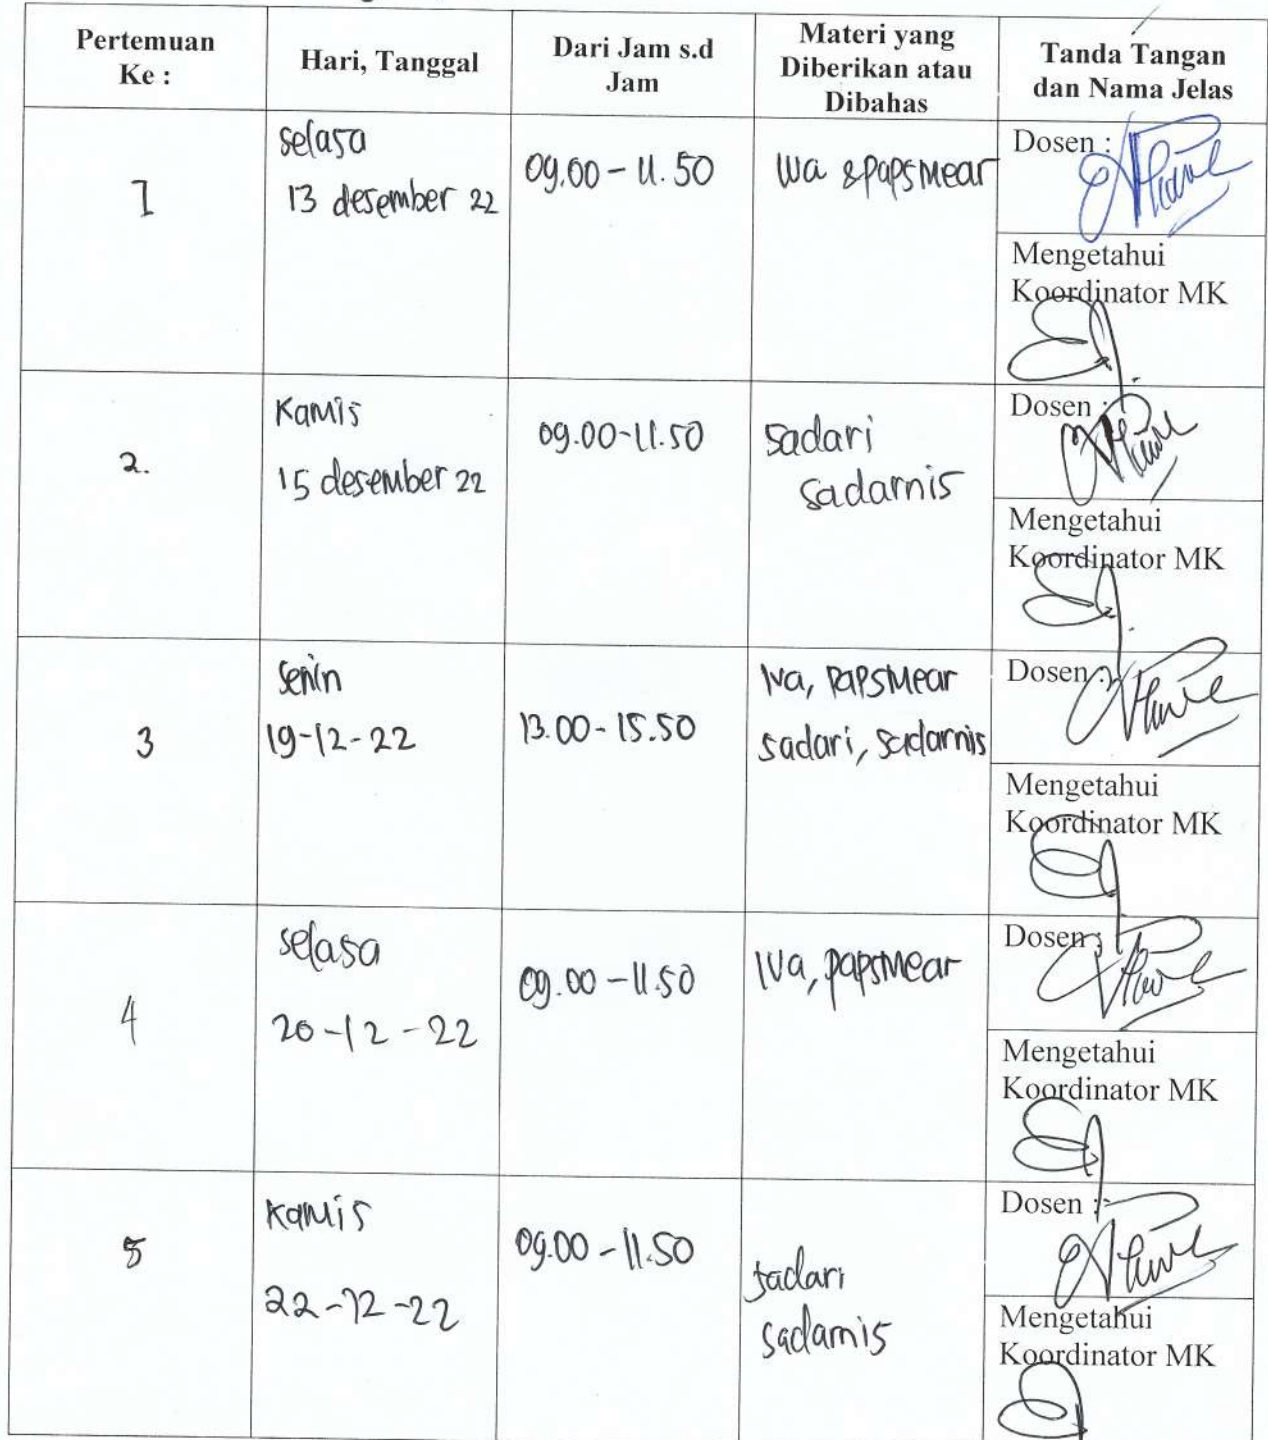 Pertemuan
Ke :
Hari, Tanggal
Dari Jam s.d
Jam
Materi yang
Diberikan atau
Dibahas
Tanda Tangan
dan Nama Jelas
1
selasa
13 desember 22
09.00 - 11.50
Iva & papsmear
Dosen :
Mengetahui
Koordinator MK
2.
Kamis
15 desember 22
09.00-11.50
Sadari
sadarnis
Dosen :
Mengetahui
Koordinator MK
3
Senin
19-12-22
13.00-15.50
Iva, papsmear
sadari, sadarnis
Dosen :
Mengetahui
Koordinator MK
4
selasa
20-12-22
09.00-11.50
Iva, papsmear
Dosen :
Mengetahui
Koordinator MK
5
Kamis
22-12-22
09.00-11.50
sadari
sadarnis
Dosen :
Mengetahui
Koordinator MK